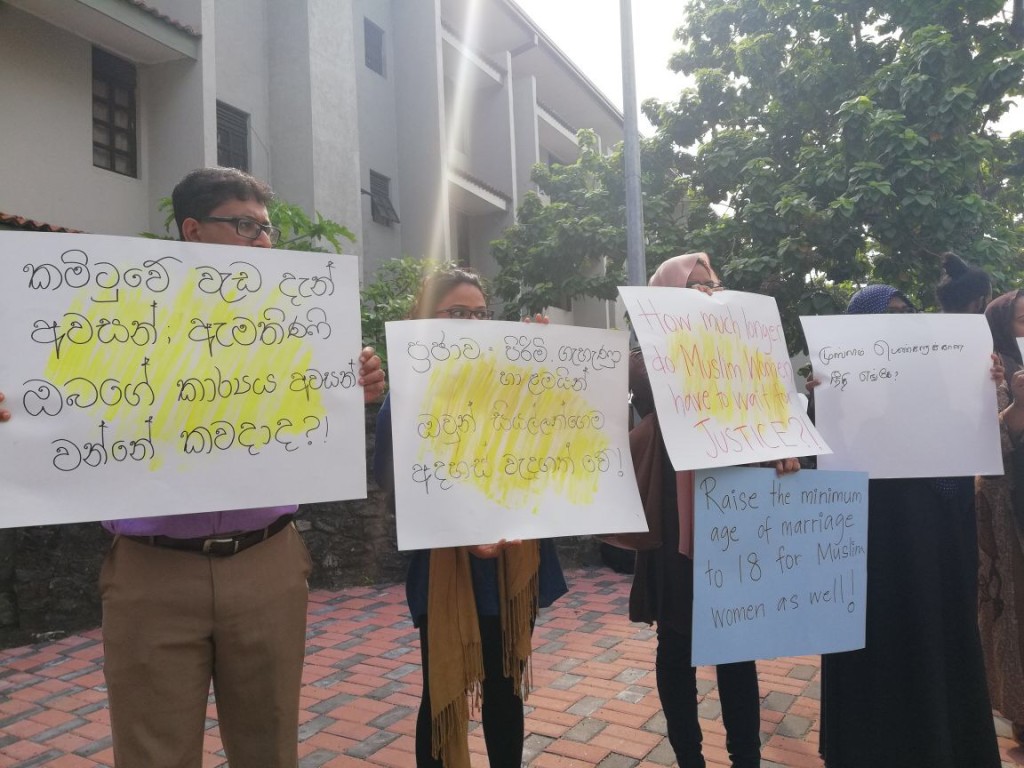 කමිටුවේ වැඩ දැන්
අවසන්; ඇමතිණි
ඔබගේ කාර්‍යය අවසන්
වන්නේ කවදාද?!
ප්‍රජාව - පිරිමි, ගැහැණු
හා ළමයින්
ඔවුන් සියල්ලන්ගෙම
අදහස් වැදගත් වේ!
How much longer
do Muslim Women
have to wait for
JUSTICE?!
Raise the minimum
age of marriage
to 18 for Muslim
women as well!
முஸ்லிம் பெண்களுக்கான
நீதி எங்கே?